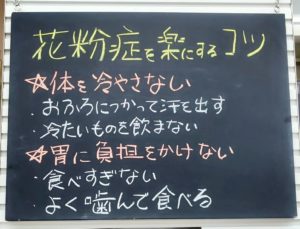 花粉症を楽にするコツ
☆体を冷やさない
・おふろにつかって汗を出す
・冷たいものを飲まない
☆胃に負担をかけない
・食べすぎない
・よく噛んで食べる